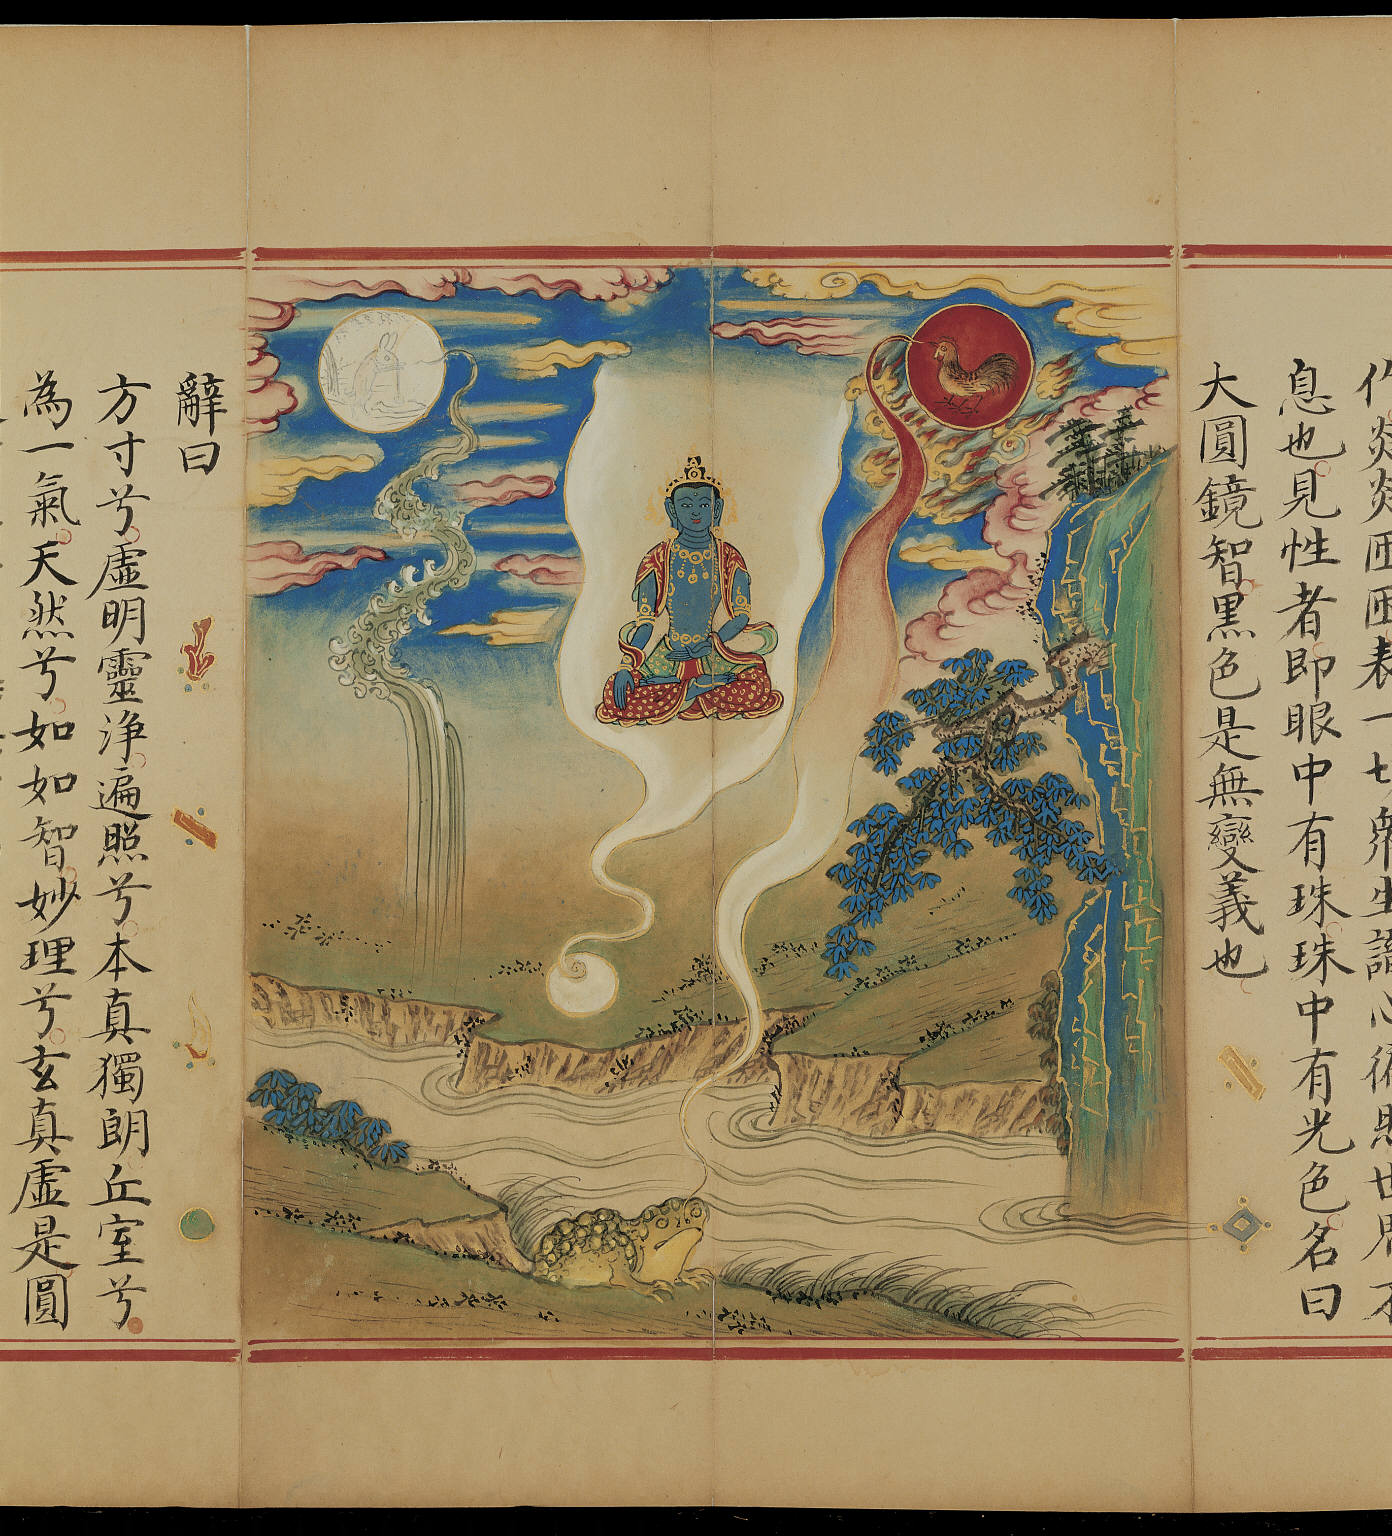 炎炎匝匝表一切衆生
息也見性者即眼中有珠珠中有光色名曰
大圓鏡智黑色是無變義也
辭曰
方寸兮虚明靈浄遍照兮本真獨朗丘室兮
為一氣天然兮如如智妙理兮玄真虚是圓